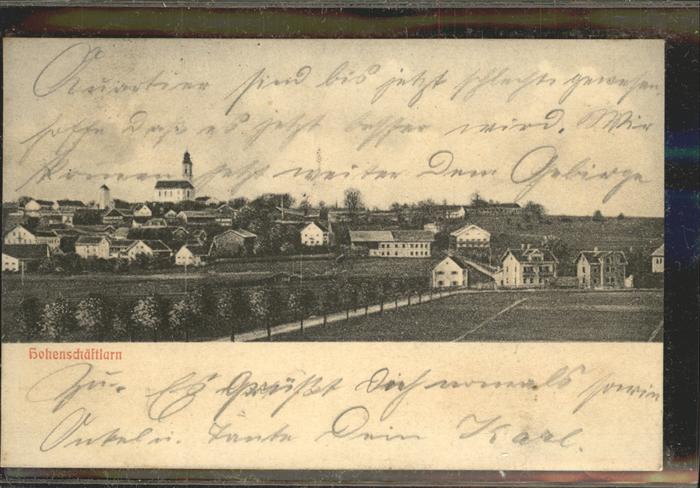 Quartier sind bis jetzt schlecht gewesen
hoffe daß es jetzt besser wird. Wir
kommen jetzt weiter dem Gebirge
Hohenschäftlarn
zu. Es Grüßt Dich nomals sowie
Onkel u. Tante Dein Karl.